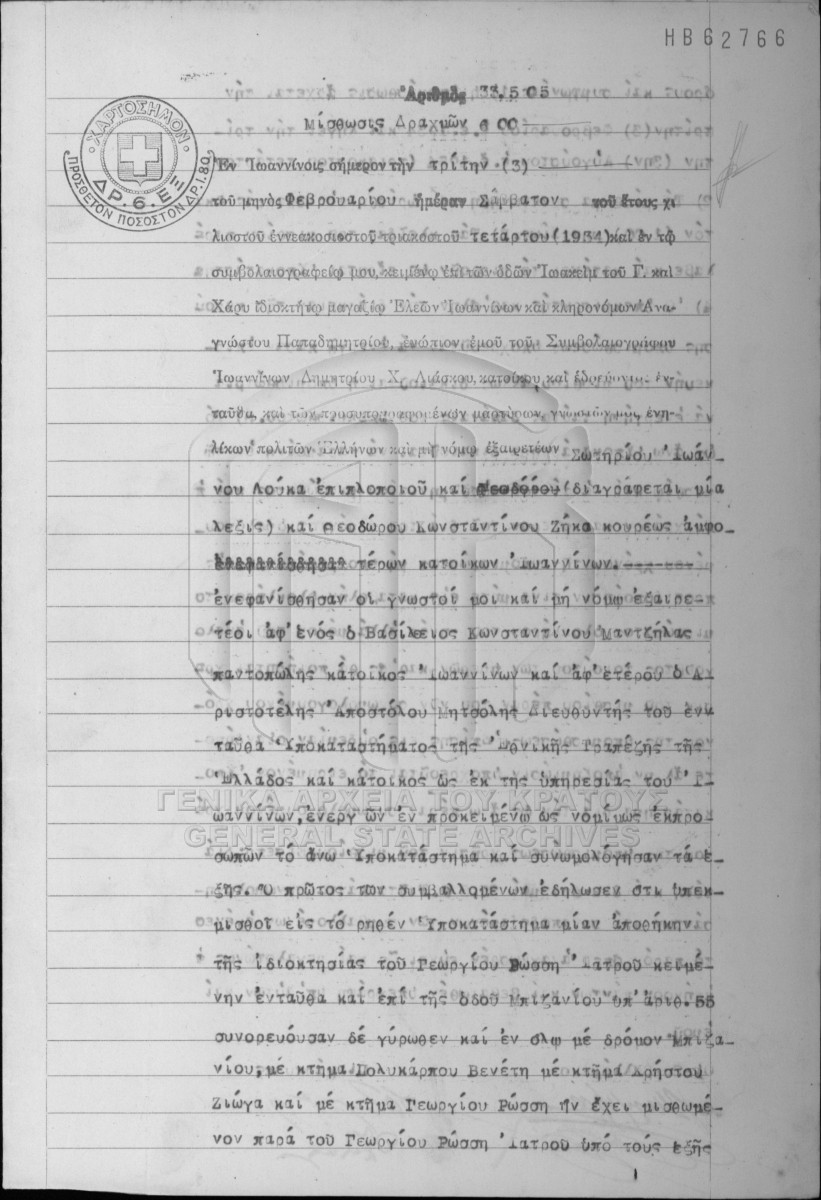 ΗΒ62766
Ἀριθμὸς 33.505
Μίσθωσις Δραχμῶν 600
ΧΑΡΤΟΣΗΜΟΝ
ΔΡ. 6. ΕΞ
ΠΡΟΣΘΕΤΟΝ ΠΟΣΟΣΤΟΝ ΔΡ. 1.80
Ἐν Ἰωαννίνοις σήμερον τὴν τρίτην (3)
τοῦ μηνὸς Φεβρουαρίου ἡμέραν Σάββατον τοῦ ἔτους χι
λιοστοῦ ἐννεακοσιοστοῦ τριακοστοῦ τετάρτου (1934) καὶ ἐν τῷ
συμβολαιογραφείῳ μου, κειμένῳ ἐπὶ τῶν ὁδῶν Ἰωακεὶμ τοῦ Γ. καὶ
Χάρυ ἰδιοκτήτῳ μαγαζίῳ Ἐλεῶν Ἰωαννίνων καὶ κληρονόμων Ἀνα-
γνώστου Παπαδημητρίου, ἐνώπιον ἐμοῦ τοῦ Συμβολαιογράφου
Ἰωαννίνων Δημητρίου Χ. Λιάσκου, κατοίκου καὶ ἑδρεύοντος ἐν-
ταῦθα, καὶ τῶν μαρτύρων, γνωστῶν μοι, ἐνη-
λίκων πολιτῶν Ἑλλήνων καὶ μὴ νόμῳ ἐξαιρετέων Σωτηρίου Ἰωάν-
νου Λούκα ἐπιπλοποιοῦ καί Θεοδόρου (διαγράφεται μία
λεξις) καί Θεοδώρου Κωνσταντίνου Ζήκα κουρέως ἀμφο-
τέρων κατοίκων Ἰωαννίνων.
ἐνεφανίσθησαν οἱ γνωστοί μοι καί μή νόμῳ ἐξαιρε-
τέοι ἀφ' ἑνός ὁ Βασίλειος Κωνσταντίνου Μαντζήλας
παντοπώλης κάτοικος Ἰωαννίνων καί ἀφ' ἑτέρου ὁ Ἀ-
ριστοτέλης Ἀποστόλου Μητσόλης Διευθυντής τοῦ ἐν
ταῦθα Ὑποκαταστήματος τῆς Ἐθνικῆς Τραπέζης τῆς
Ἑλλάδος καί κάτοικος ὡς ἐκ τῆς ὑπηρεσίας του Ἰ-
ωαννίνων, ἐνεργῶν ἐν προκειμένῳ ὡς νομίμως ἐκπρο
σωπῶν τό ἄνω Ὑποκατάστημα καί συνωμολόγησαν τά ἑ-
ξῆς. Ὁ πρῶτος τῶν συμβαλλομένων ἐδήλωσεν ὅτι ὑπεκ-
μισθοῖ εἰς τό ρηθέν Ὑποκατάστημα μίαν ἀποθήκην
τῆς ἰδιοκτησίας τοῦ Γεωργίου Ρώσση Ἰατροῦ κειμέ-
νην ἐνταῦθα καί ἐπί τῆς ὁδοῦ Μπιζανίου ὑπ' ἀριθ. 55
συνορεύουσαν δέ γύρωθεν καί ἐν ὅλῳ μέ δρόμον Μπιζα-
νίου, μέ κτῆμα Πολυκάρπου Βενέτη μέ κτῆμα Χρήστου
Ζιώγα καί μέ κτῆμα Γεωργίου Ρώσση ἥν ἔχει μισθωμέ-
νον παρά τοῦ Γεωργίου Ρώσση Ἰατροῦ ὑπό τούς ἑξῆς
ΓΕΝΙΚΑ ΑΡΧΕΙΑ ΤΟΥ ΚΡΑΤΟΥΣ
GENERAL STATE ARCHIVES